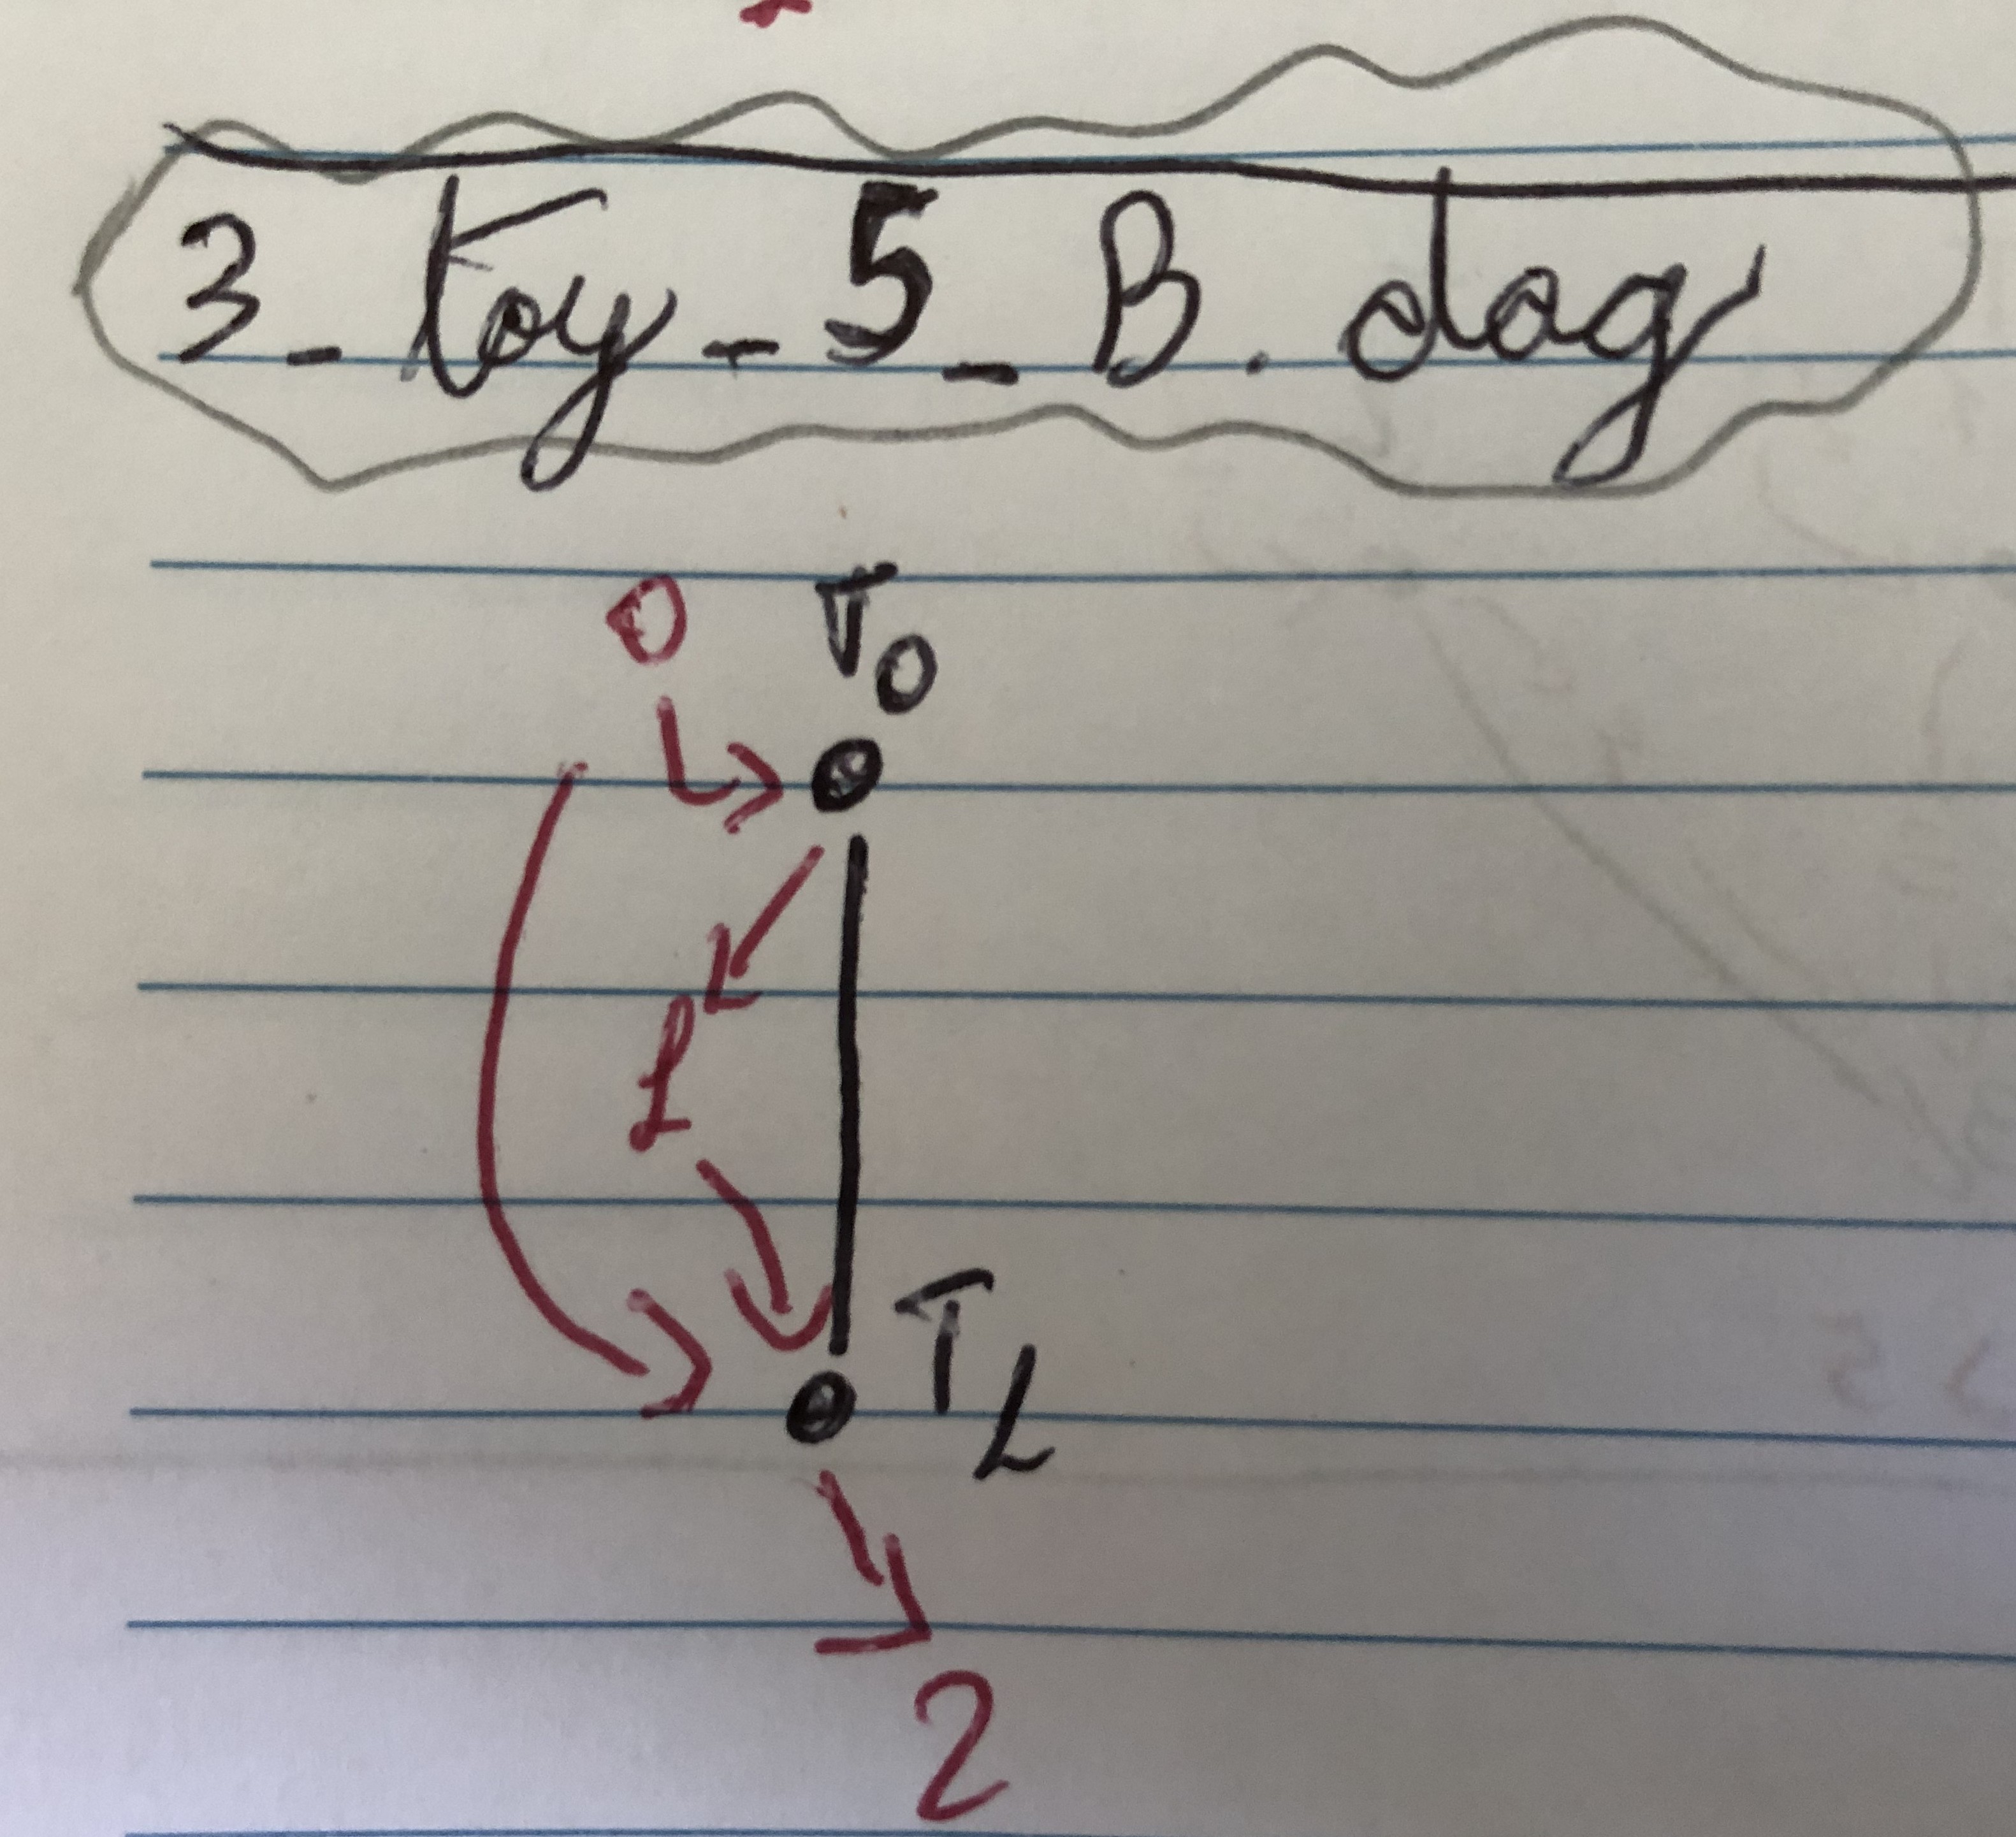 3_toy_5_B.dag
0 T0
1
T1
2